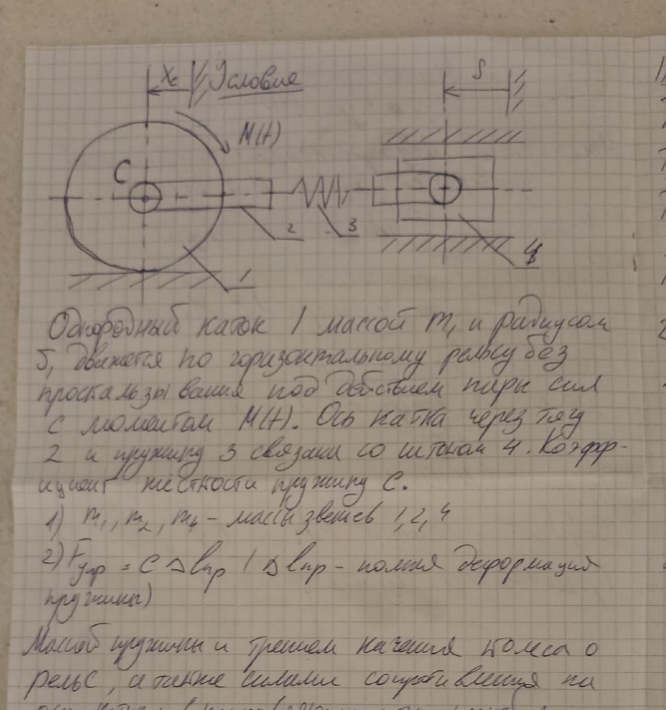 Xc Условие S
M(t)
C
2 3
4
1
Однородный каток 1 массой m₁ и радиусом
5, движется по горизонтальному рельсу без
проскальзывания под действием пары сил
с моментом M(t). Ось катка через тягу
2 и пружину 3 связана со штоком 4. Коэффи-
циент жесткости пружины C.
1) m₁, m₂, m₄ - массы звеньев 1, 2, 4
2) Fупр = C Δlпр / Δlпр - полная деформация
пружины)
Массой пружины и трением качения колеса о
рельс, а также силами сопротивления на